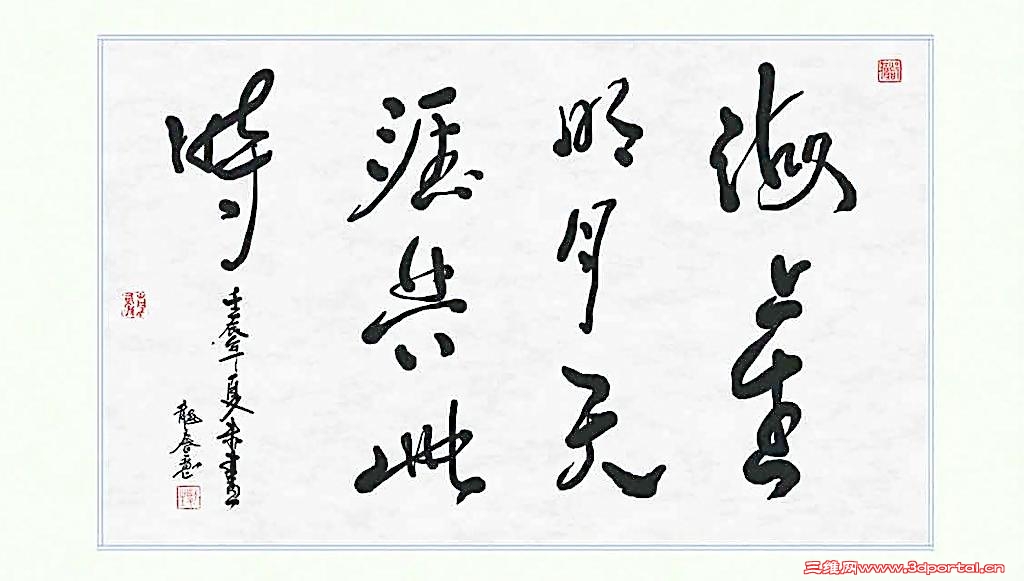 海上生
明月天
涯共此
時
壬辰年夏末書
三维网www.3dportal.cn